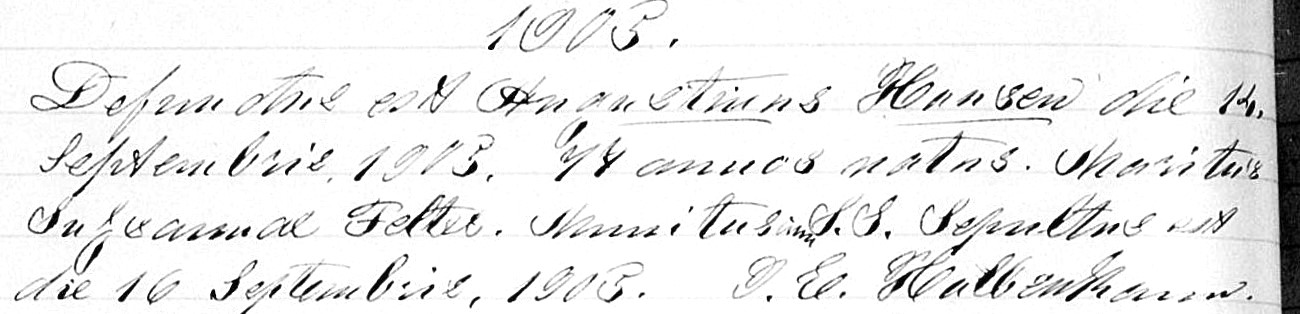 1903.
Defunctus est Augustinus Hansen die 14.
Septembris, 1903. 74 annos natus. Maritus
Susannae Felter. Munitus omn S.S. Sepultus est
die 16 Septembris, 1903. P. E.